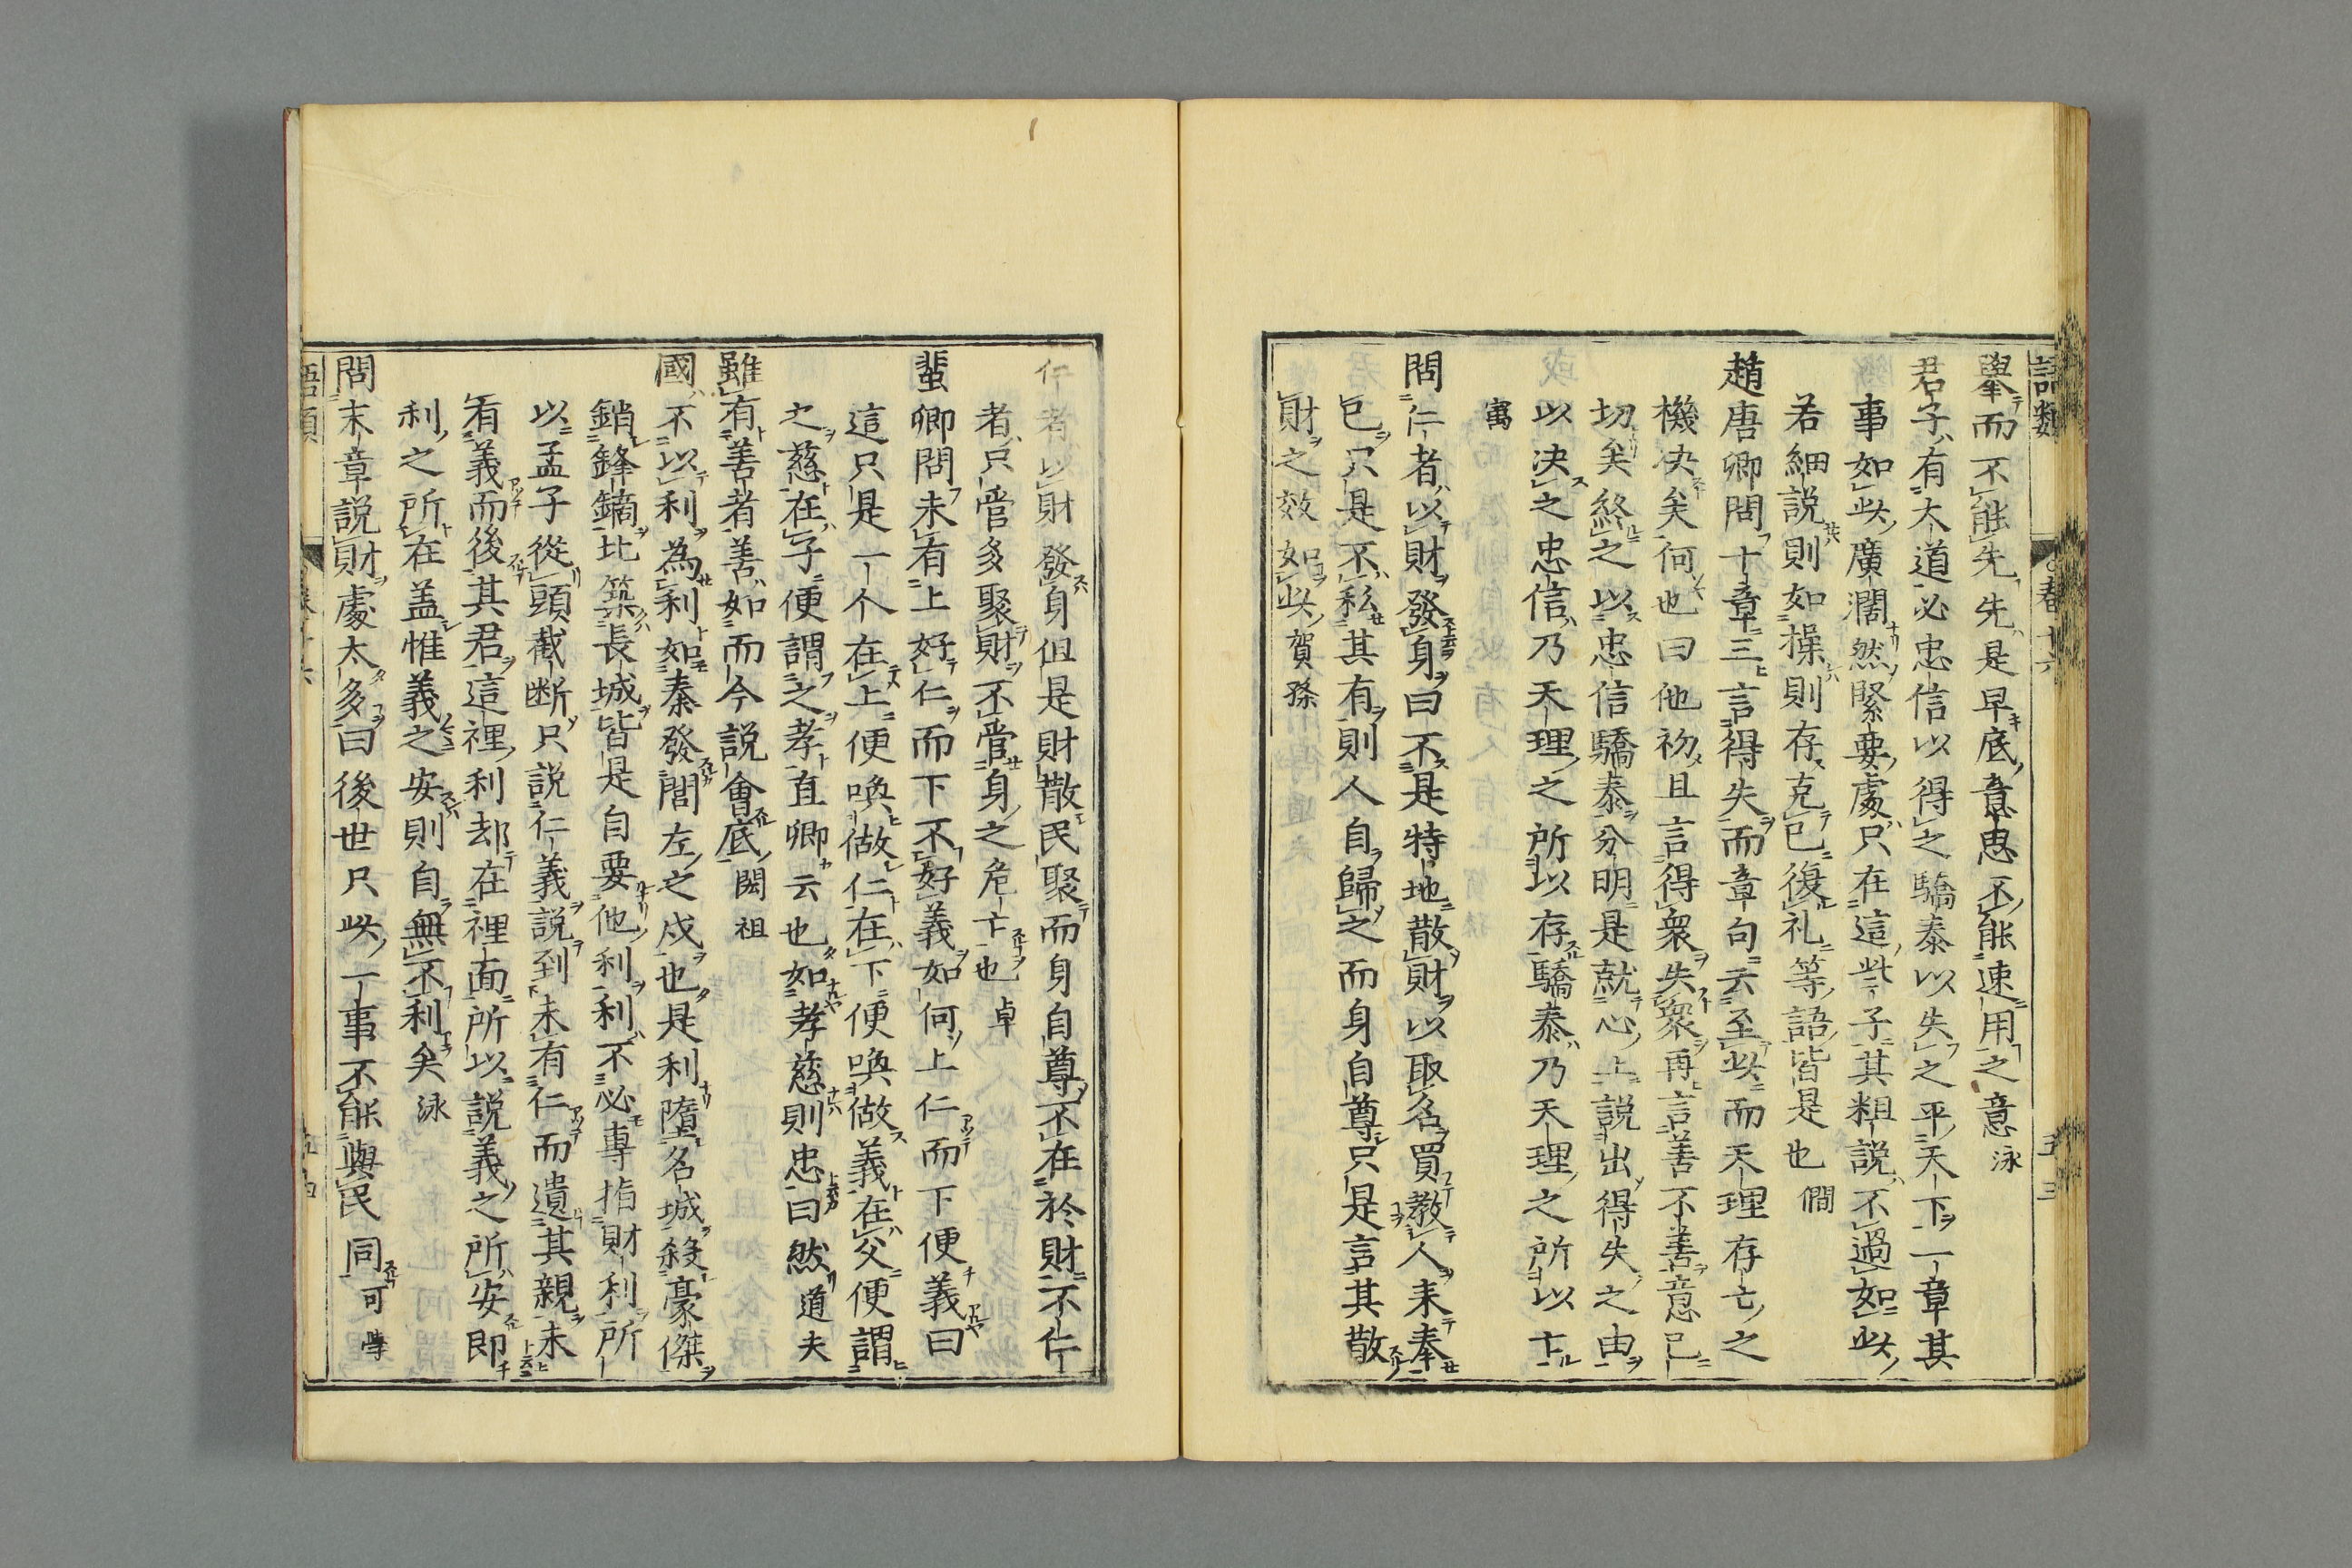 擧而不能先先是早底意思不能速用之意泳
君子有大道必忠信以得之驕泰以失之平天下一章其
事如此廣濶然緊要處只在這些子其粗說不過如此
若細說則如操則存克己復礼等語皆是也僩
趙唐卿問十章三言得失而章句云至此而天理存亡之
機决矣何也曰他初且言得衆失衆再言善不善意已
切矣終之以忠信驕泰分明是就心上說出得失之由
以决之忠信乃天理之所以存驕泰乃天理之所以亡
㝢
問仁者以財發身曰不是特地散財以取名買教人来奉
己只是不私其有則人自歸之而身自尊只是言其散
財之效如此賀孫
仁者以財發身但是財散民聚而身自尊不在於財不仁
者只管多聚財不管身之危亡也卓
蜚卿問未有上好仁而下不好義如何上仁而下便義曰
這只是一个在上便喚做仁在下便喚做義在父便謂
之慈在子便謂之孝直卿云也如孝慈則忠曰然道夫
雖有善者善如而今說會底閎祖
國不以利為利如秦發閭左之戍也是利墮名城殺豪傑
銷鋒鏑北築長城皆是自要他利利不必專指財利所
以孟子從頭截断只說仁義說到未有仁而遺其親未
有義而後其君這裡利却在裡面所以說義之所安即
利之所在盖惟義之安則自無不利矣泳
問末章說財處太多曰後世只此一事不能與民同可學